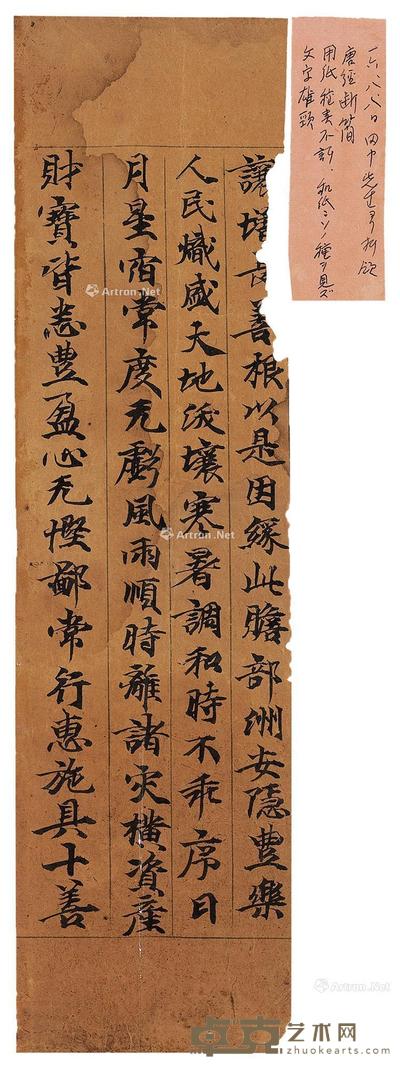 讓增長善根以是因緣此贍部洲安隱豐樂
人民熾盛天地沃壤寒暑調和時不乖序日
月星宿常度无虧風雨順時離諸灾橫資產
財寶皆悉豐盈心无慳鄙常行惠施具十善
一六、八、八日 田中先生ヨリ拝領
唐經断簡
用紙種 不詳、和紙ニ 種ヲ見ズ
文字雄頸
Artron.Net
Artron.Net
Artron.Net
卓克艺术网
www.zhuokearts.com